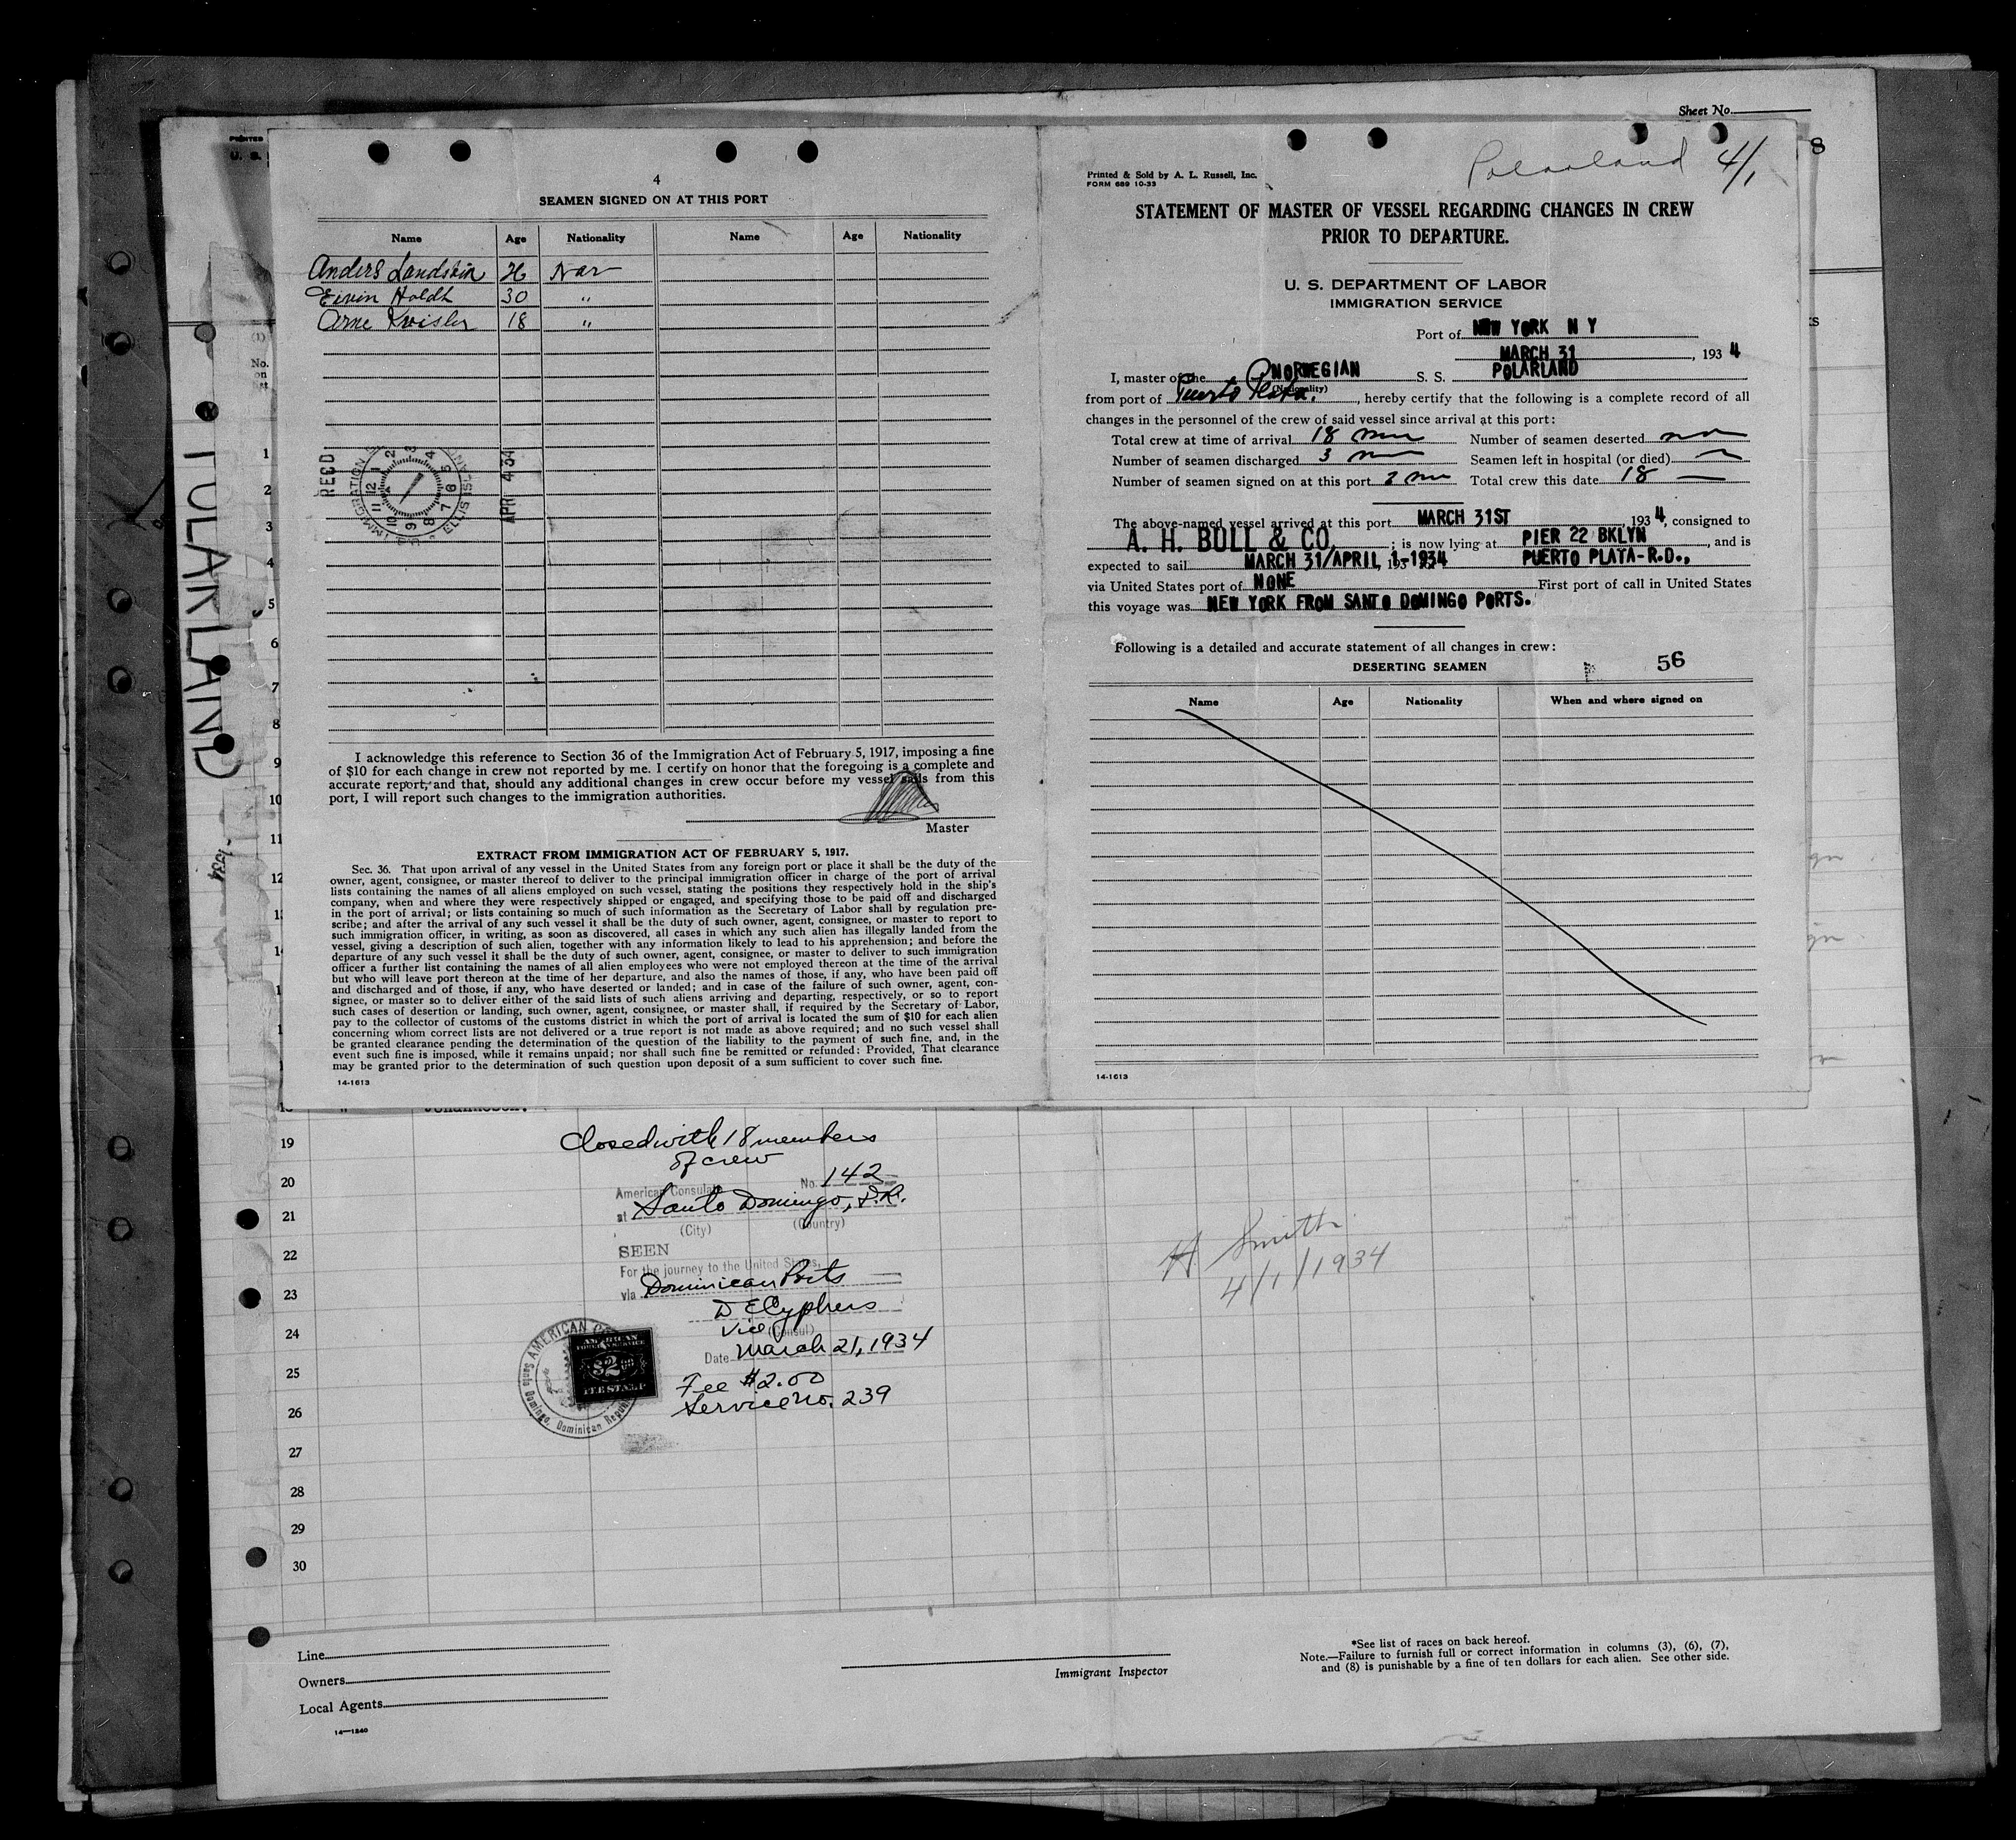 Sheet No.
PRINTED
U. S.
8
4
SEAMEN SIGNED ON AT THIS PORT
Name Age Nationality Name Age Nationality
Anders Landstein 26 Nor
Eivin Holdt 30 "
Arne 18 "
REC'D
IMMIGRATION
ELLIS ISLAND
APR 4 34
POLARLAND
No.
on
1
2
3
4
5
6
7
8
9
10
11
12
I acknowledge this reference to Section 36 of the Immigration Act of February 5, 1917, imposing a fine
of $10 for each change in crew not reported by me. I certify on honor that the foregoing is a complete and
accurate report, and that, should any additional changes in crew occur before my vessel sails from this
port, I will report such changes to the immigration authorities.
Master
EXTRACT FROM IMMIGRATION ACT OF FEBRUARY 5, 1917.
Sec. 36. That upon arrival of any vessel in the United States from any foreign port or place it shall be the duty of the
owner, agent, consignee, or master thereof to deliver to the principal immigration officer in charge of the port of arrival
lists containing the names of all aliens employed on such vessel, stating the positions they respectively hold in the ship's
company, when and where they were respectively shipped or engaged, and specifying those to be paid off and discharged
in the port of arrival; or lists containing so much of such information as the Secretary of Labor shall by regulation pre-
scribe; and after the arrival of any such vessel it shall be the duty of such owner, agent, consignee, or master to report to
such immigration officer, in writing, as soon as discovered, all cases in which any such alien has illegally landed from the
vessel, giving a description of such alien, together with any information likely to lead to his apprehension; and before the
departure of any such vessel it shall be the duty of such owner, agent, consignee, or master to deliver to such immigration
officer a further list containing the names of all alien employees who were not employed thereon at the time of the arrival
but who will leave port thereon at the time of her departure, and also the names of those, if any, who have been paid off
and discharged and of those, if any, who have deserted or landed; and in case of the failure of such owner, agent, con-
signee, or master so to deliver either of the said lists of such aliens arriving and departing, respectively, or so to report
such cases of desertion or landing, such owner, agent, consignee, or master shall, if required by the Secretary of Labor,
pay to the collector of customs of the customs district in which the port of arrival is located the sum of $10 for each alien
concerning whom correct lists are not delivered or a true report is not made as above required; and no such vessel shall
be granted clearance pending the determination of the question of the liability to the payment of such fine, and, in the
event such fine is imposed, while it remains unpaid; nor shall such fine be remitted or refunded: Provided, That clearance
may be granted prior to the determination of such question upon deposit of a sum sufficient to cover such fine.
14-1613
Polarland 4/1
Printed & Sold by A. L. Russell, Inc.
FORM 689 10-33
STATEMENT OF MASTER OF VESSEL REGARDING CHANGES IN CREW
PRIOR TO DEPARTURE.
U. S. DEPARTMENT OF LABOR
IMMIGRATION SERVICE
Port of NEW YORK N Y
MARCH 31, 1934
I, master of the NORWEGIAN S. S. POLARLAND
(Nationality)
from port of Puerto Plata, hereby certify that the following is a complete record of all
changes in the personnel of the crew of said vessel since arrival at this port:
Total crew at time of arrival 18 men Number of seamen deserted no
Number of seamen discharged 3 men Seamen left in hospital (or died)
Number of seamen signed on at this port 3 men Total crew this date 18
The above-named vessel arrived at this port MARCH 31ST, 1934, consigned to
A. H. BULL & CO.; is now lying at PIER 22 BKLYN, and is
expected to sail MARCH 31/APRIL 1-1934 PUERTO PLATA-R.D.,
via United States port of NONE First port of call in United States
this voyage was NEW YORK FROM SANTO DOMINGO PORTS.
Following is a detailed and accurate statement of all changes in crew:
DESERTING SEAMEN 56
Name Age Nationality When and where signed on
14-1613
19
20
21
22
23
24
25
26
27
28
29
30
Closed with 18 members
of crew
American Consulate No. 142
at Santo Domingo, D.R.
(City) (Country)
SEEN
For the journey to the United States,
via Dominican Ports
D E Cyphers
Vice (Consul)
Date March 21, 1934
Fee $2.00
Service No. 239
AMERICAN
Santo Domingo, Dominican Republic
AMERICAN
FOREIGN SERVICE
$2.00
FEE STAMP
H Smith
4/1/1934
Line
Owners
Local Agents
14-1240
Immigrant Inspector
*See list of races on back hereof.
Note.—Failure to furnish full or correct information in columns (3), (6), (7),
and (8) is punishable by a fine of ten dollars for each alien. See other side.